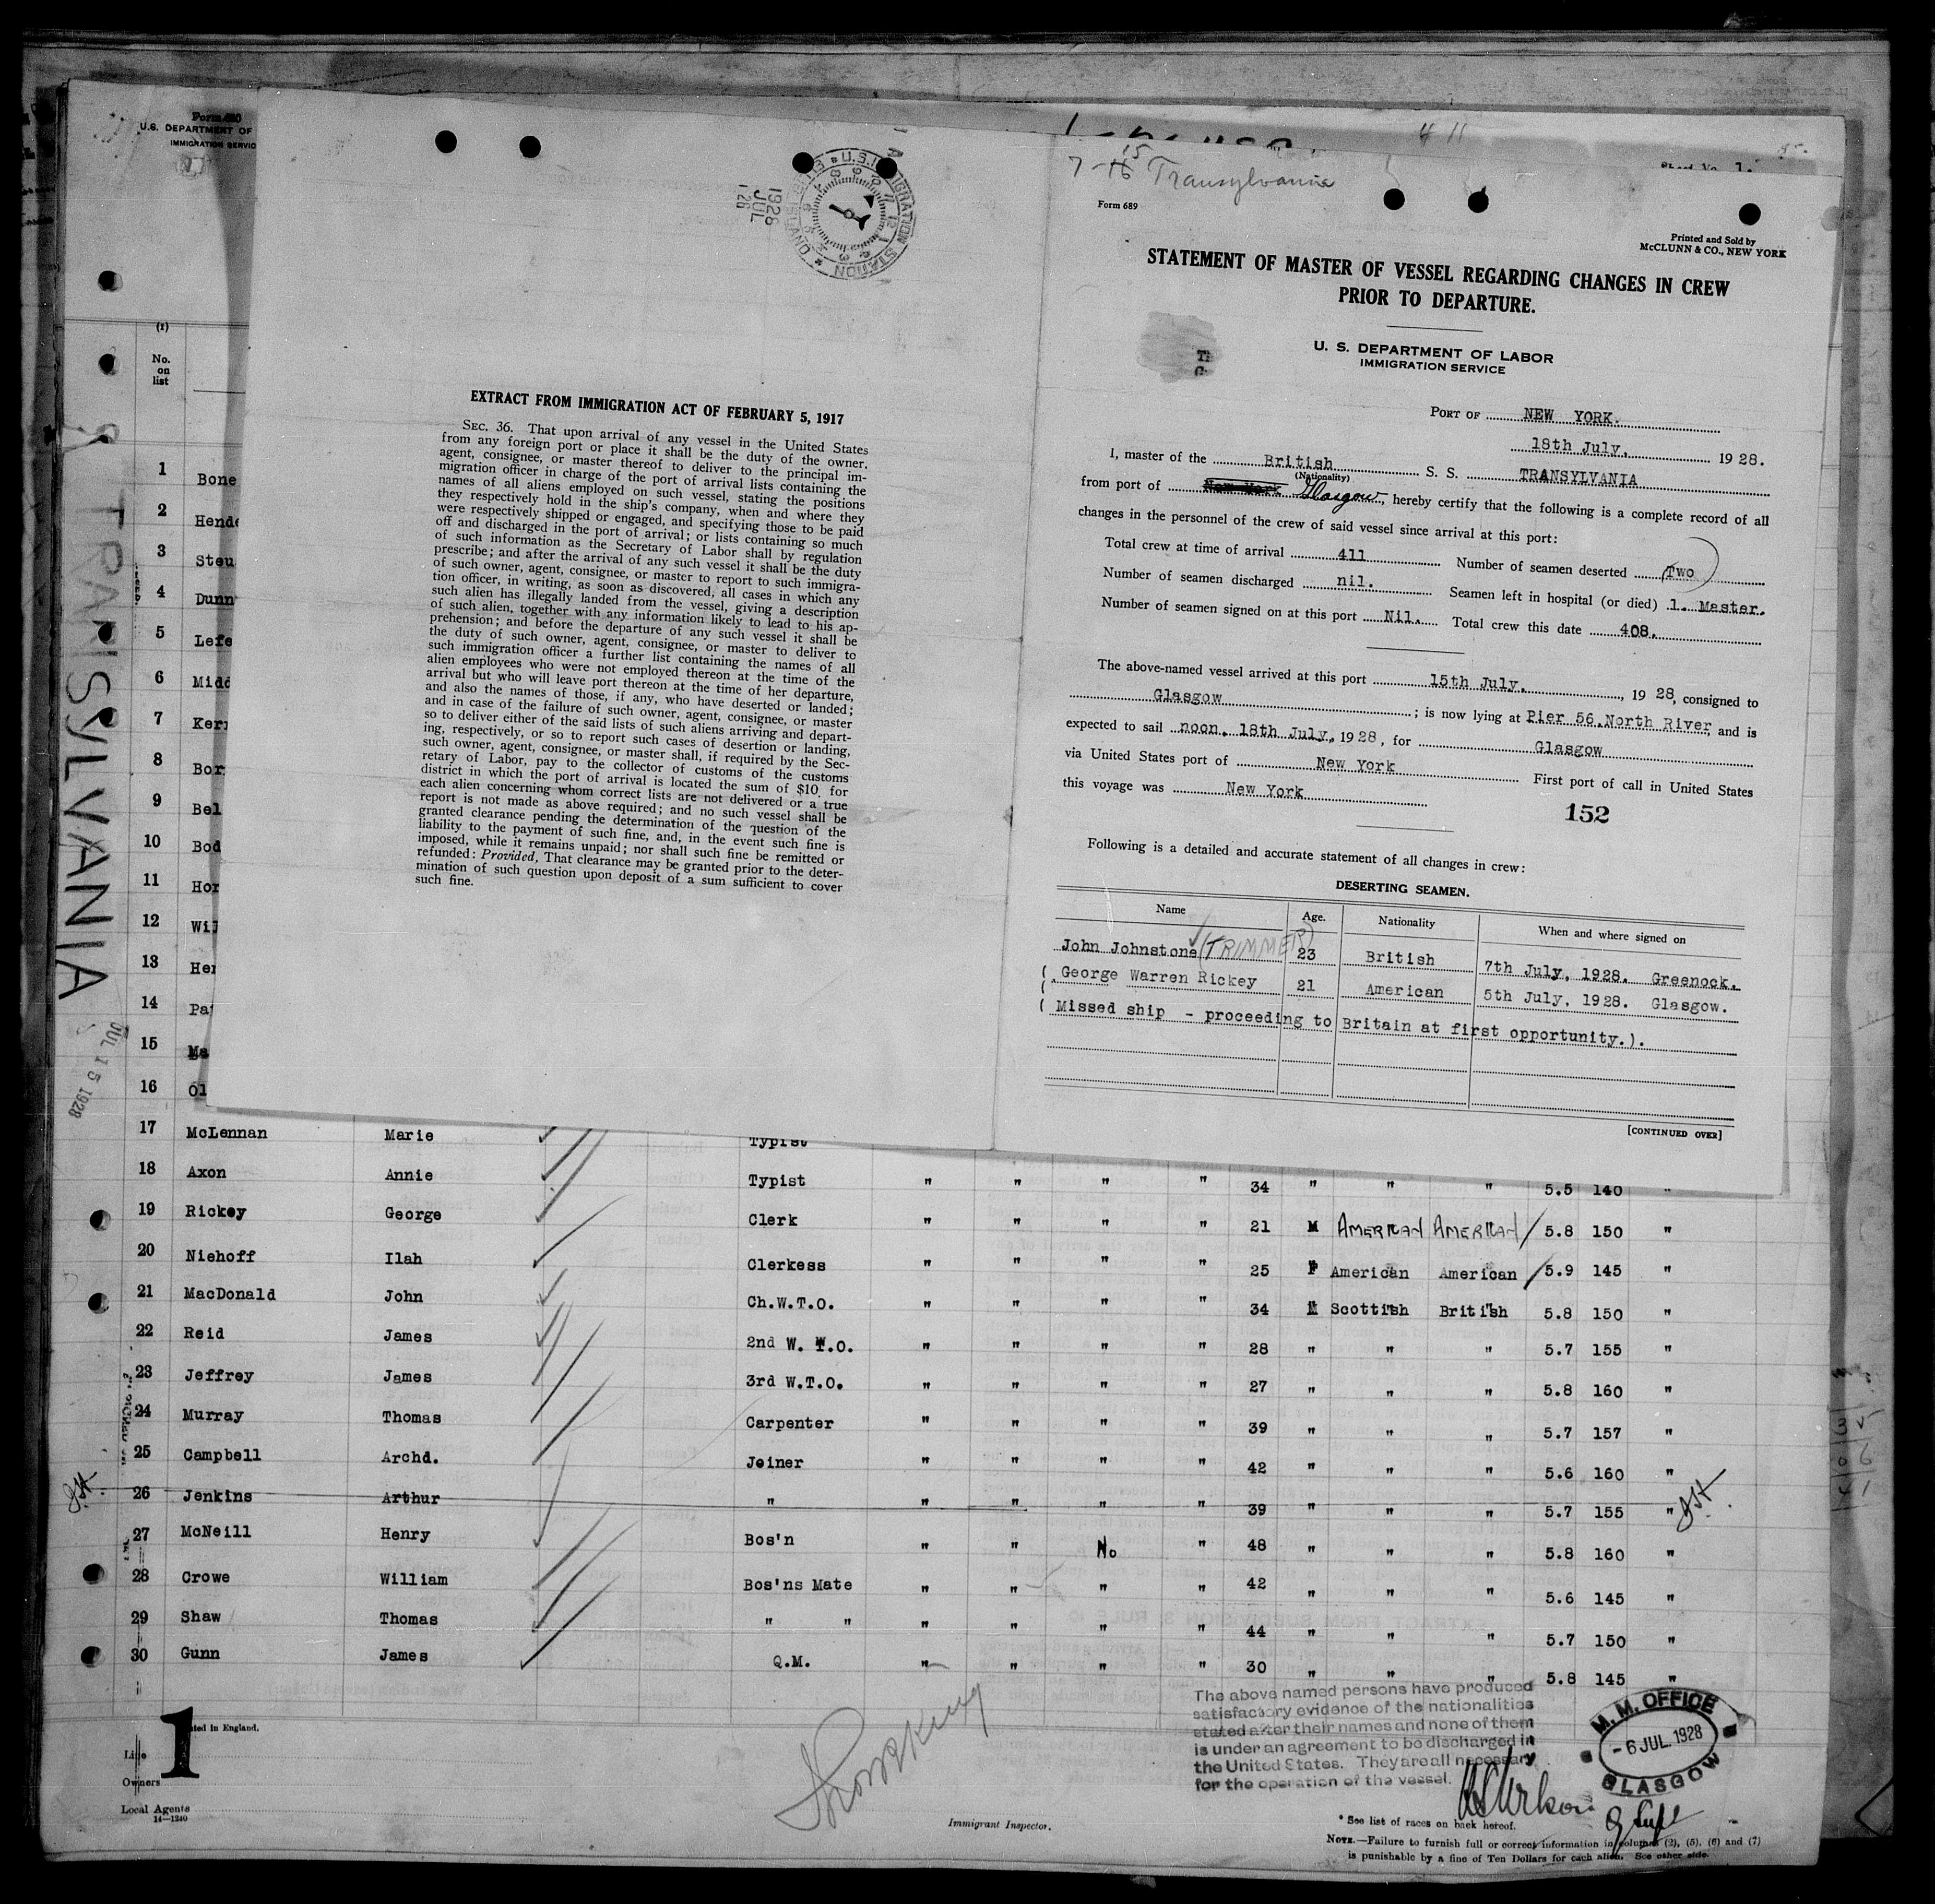 Form 680
U.S. DEPARTMENT OF
IMMIGRATION SERVIC
(1)
No.
on
list
1 Bone
2 Hende
3 Steu
4 Dunn
5 Lefe
6 Midd
7 Kerr
8 Bor
9 Bel
10 Bod
11 Hor
12 Wil
13 Her
14 Pat
15 Ma
16 Ol
TRANSYLVANIA
JUL 15 1928
U.S. IMMIGRATION STATION
1928
JUL
EXTRACT FROM IMMIGRATION ACT OF FEBRUARY 5, 1917
SEC. 36. That upon arrival of any vessel in the United States
from any foreign port or place it shall be the duty of the owner,
agent, consignee, or master thereof to deliver to the principal im-
migration officer in charge of the port of arrival lists containing the
names of all aliens employed on such vessel, stating the positions
they respectively hold in the ship's company, when and where they
were respectively shipped or engaged, and specifying those to be paid
off and discharged in the port of arrival; or lists containing so much
of such information as the Secretary of Labor shall by regulation
prescribe; and after the arrival of any such vessel it shall be the duty
of such owner, agent, consignee, or master to report to such immigra-
tion officer, in writing, as soon as discovered, all cases in which any
such alien has illegally landed from the vessel, giving a description
of such alien, together with any information likely to lead to his ap-
prehension; and before the departure of any such vessel it shall be
the duty of such owner, agent, consignee, or master to deliver to
such immigration officer a further list containing the names of all
alien employees who were not employed thereon at the time of the
arrival but who will leave port thereon at the time of her departure,
and also the names of those, if any, who have deserted or landed;
and in case of the failure of such owner, agent, consignee, or master
so to deliver either of the said lists of such aliens arriving and depart-
ing, respectively, or so to report such cases of desertion or landing,
such owner, agent, consignee, or master shall, if required by the Sec-
retary of Labor, pay to the collector of customs of the customs
district in which the port of arrival is located the sum of $10 for
each alien concerning whom correct lists are not delivered or a true
report is not made as above required; and no such vessel shall be
granted clearance pending the determination of the question of the
liability to the payment of such fine, and, in the event such fine is
imposed, while it remains unpaid; nor shall such fine be remitted or
refunded: Provided, That clearance may be granted prior to the deter-
mination of such question upon deposit of a sum sufficient to cover
such fine.
4 11
7-15 Transylvania
Sheet No. 1.
Form 689
Printed and Sold by
McCLUNN & CO., NEW YORK
STATEMENT OF MASTER OF VESSEL REGARDING CHANGES IN CREW
PRIOR TO DEPARTURE.
U. S. DEPARTMENT OF LABOR
IMMIGRATION SERVICE
PORT OF NEW YORK.
18th July, 1928.
I, master of the British S. S. TRANSYLVANIA
(Nationality)
from port of New York Glasgow, hereby certify that the following is a complete record of all
changes in the personnel of the crew of said vessel since arrival at this port:
Total crew at time of arrival 411 Number of seamen deserted Two
Number of seamen discharged nil. Seamen left in hospital (or died) 1. Master.
Number of seamen signed on at this port Nil. Total crew this date 408.
The above-named vessel arrived at this port 15th July, 1928, consigned to
Glasgow; is now lying at Pier 56, North River, and is
expected to sail noon, 18th July, 1928, for Glasgow
via United States port of New York First port of call in United States
this voyage was New York
152
Following is a detailed and accurate statement of all changes in crew:
DESERTING SEAMEN.
Name Age. Nationality When and where signed on
John Johnstone (TRIMMER) 23 British 7th July, 1928. Greenock.
( George Warren Rickey 21 American 5th July, 1928. Glasgow.
( Missed ship - proceeding to Britain at first opportunity.).
[CONTINUED OVER]
17 McLennan Marie Typist
18 Axon Annie Typist " " " " 34 " " " 5.5 140 "
19 Rickey George Clerk " " " " 21 M AMERICAN AMERICAN 5.8 150 "
20 Niehoff Ilah Clerkess " " " " 25 F American American 5.9 145 "
21 MacDonald John Ch.W.T.O. " " " " 34 M Scottish British 5.8 150 "
22 Reid James 2nd W. T.O. " " " " 28 " " " 5.7 155 "
23 Jeffrey James 3rd W.T.O. " " " " 27 " " " 5.8 160 "
24 Murray Thomas Carpenter " " " " 39 " " " 5.7 157 "
25 Campbell Archd. Joiner " " " " 42 " " " 5.6 160 "
26 Jenkins Arthur " " " " " 39 " " " 5.7 155 "
27 McNeill Henry Bos'n " " No " 48 " " " 5.8 160 "
28 Crowe William Bos'ns Mate " " " " 42 " " " 5.6 145 "
29 Shaw Thomas " " " " " " 44 " " " 5.7 150 "
30 Gunn James Q.M. " " " " 30 " " " 5.8 145 "
The above named persons have produced
satisfactory evidence of the nationalities
stated after their names and none of them
is under an agreement to be discharged in
the United States. They are all necessary
for the operation of the vessel.
M. M. OFFICE
- 6 JUL. 1928
GLASGOW
1
Printed in England.
Line
Owners
Local Agents
14—1240
Immigrant Inspector.
* See list of races on back hereof.
NOTE.—Failure to furnish full or correct information in columns (2), (5), (6) and (7)
is punishable by a fine of Ten Dollars for each alien. See other side.